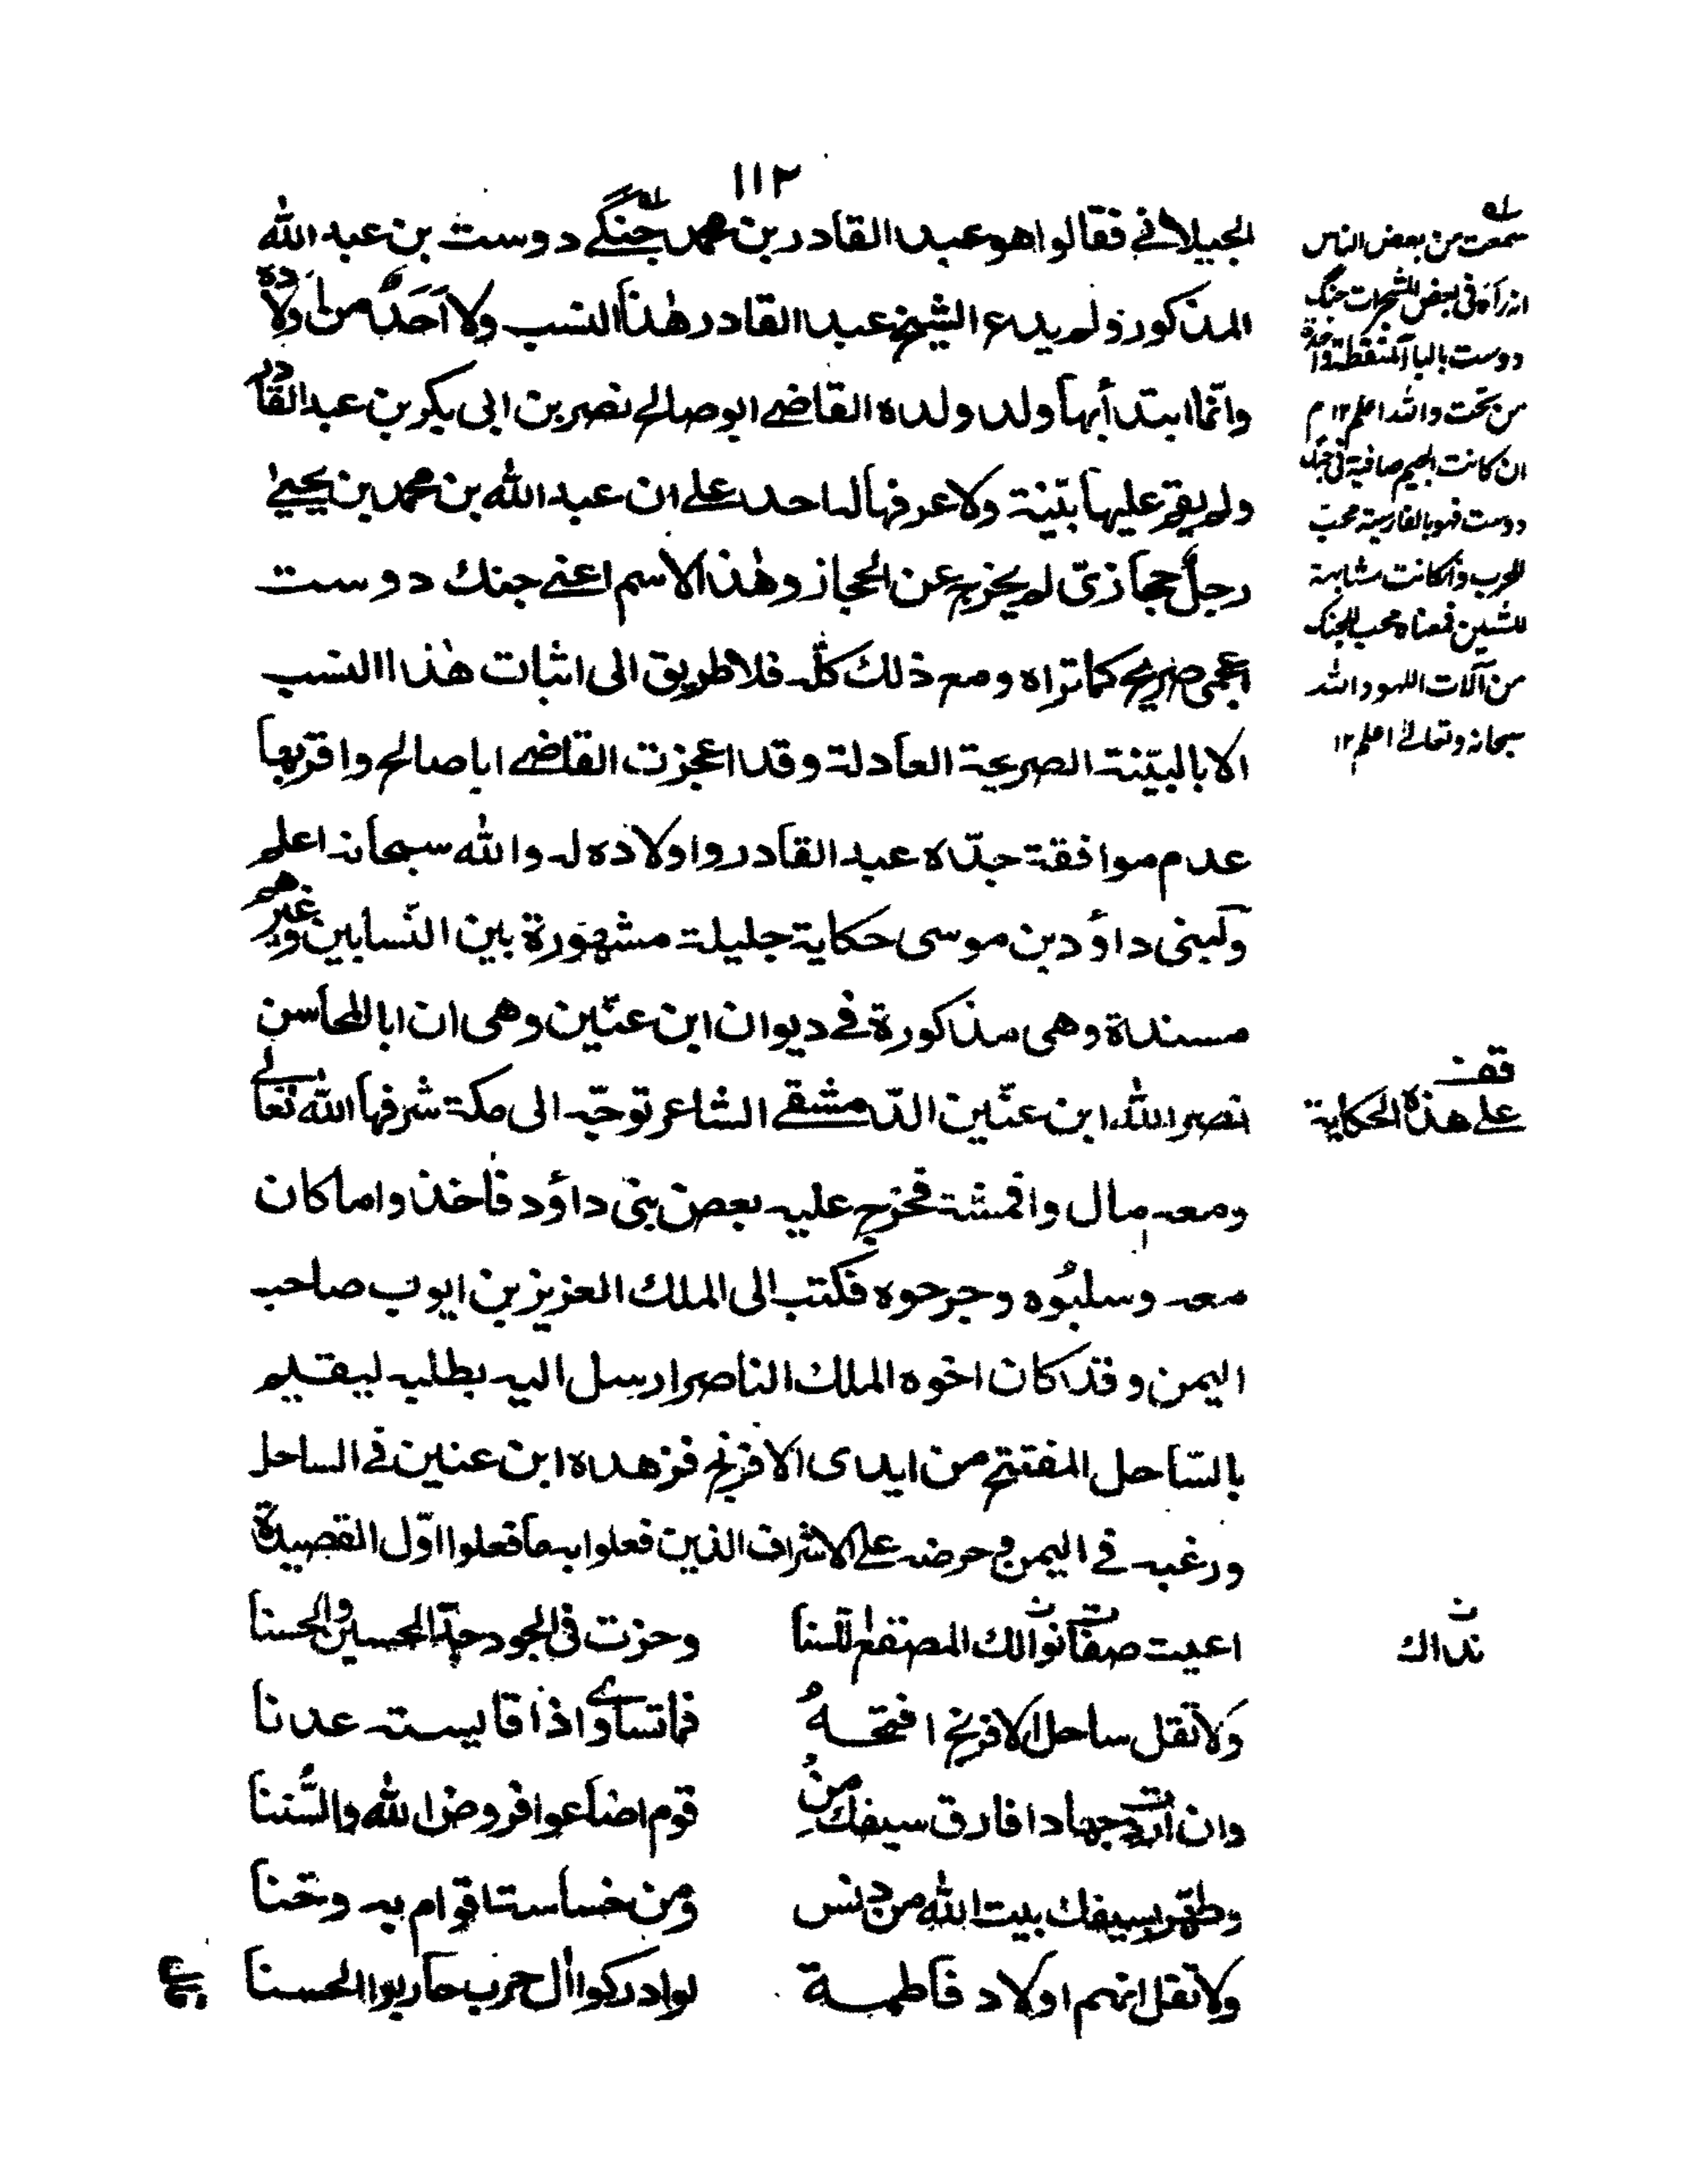 ١١٢
الجيلاني فقالوا هو عبد القادر بن محمد جنگے دوست بن عبد الله
المذكور ولم يدع الشيخ عبد القادر هٰذا النسب ولا اَحَدٌ من اولاده
وانّما ابتدأ بها ولد ولده القاضے ابو صالح نصر بن ابى بكر بن عبد القادر
ولم يقم عليها بيّنة ولا عرفها لد احد على ان عبد الله بن محمد بن يحيىٰ
رجلٌ حجازىّ لم يخرج عن الحجاز وهٰذا الاسم اعنے جنك دوست
اعجمى صريح كما تراه ومع ذلك كلّه فلا طريق الى اثبات هٰذا النسب
الا بالبيّنة الصريحة العادلة وقد اعجزت القاضے ابا صالح واقتربها
عدم موافقة جدّه عبد القادر واولاده له والله سبحانه اعلم
ولبنى داؤد بن موسى حكاية جليلة مشهورة بين النّسابين وغيرهم
مسندة وهى مذكورة فے ديوان ابن عنّين وهى ان ابا المحاسن
نصر الله ابن عنّين الدّمشقے الشاعر توجّه الى مكة شرفها الله تعالے
ومعه مال واقمشة فخرج عليه بعض بنى داؤد فاخذوا ما كان
معه وسلبُوه وجرحوه فكتب الى الملك العزيز بن ايوب صاحب
اليمن وقد كان اخوه الملك الناصر ارسل اليه بطلبه ليقيم
بالسّاحل المفتتح من ايدى الافرنج فزهده ابن عنين فے الساحل
ورغبه فے اليمن وحرضه على الاشراف الذين فعلوا به ما فعلوا اوّل القصيدة
اعيت صفات نوالك المصقع اللسنا وحزت فى الجود حدّ الحسن والحسنا
وَلا تقل ساحل الافرنج افتحهُ فما تساوے اذا قايسته عدنا
وان اردت جهادا فارق سيفك مِن قوم اضاعوا فروض الله والسُّننا
وطهّر بسيفك بيت الله من دنس ومن خساسة اقوام به وخنا
ولا تقل انهم اولاد فاطمة لو ادركوا اٰل حرب حاربوا الحسنا
سمعت من بعض الناس
انه رآه فى بعض المشجرات جنگ
دوست بالباء المنقطة واحدة
من تحت والله اعلم ١٢ م
ان كانت الجيم صافية فى جنگ
دوست فهو بالفارسية محب
للحرب وان كانت مشابهة
للشين فمعناه محب للجنگ
من آلات اللهو والله
سبحانه وتعالىٰ اعلم ١٢
قف
على هذه الحكاية
ن
نداك